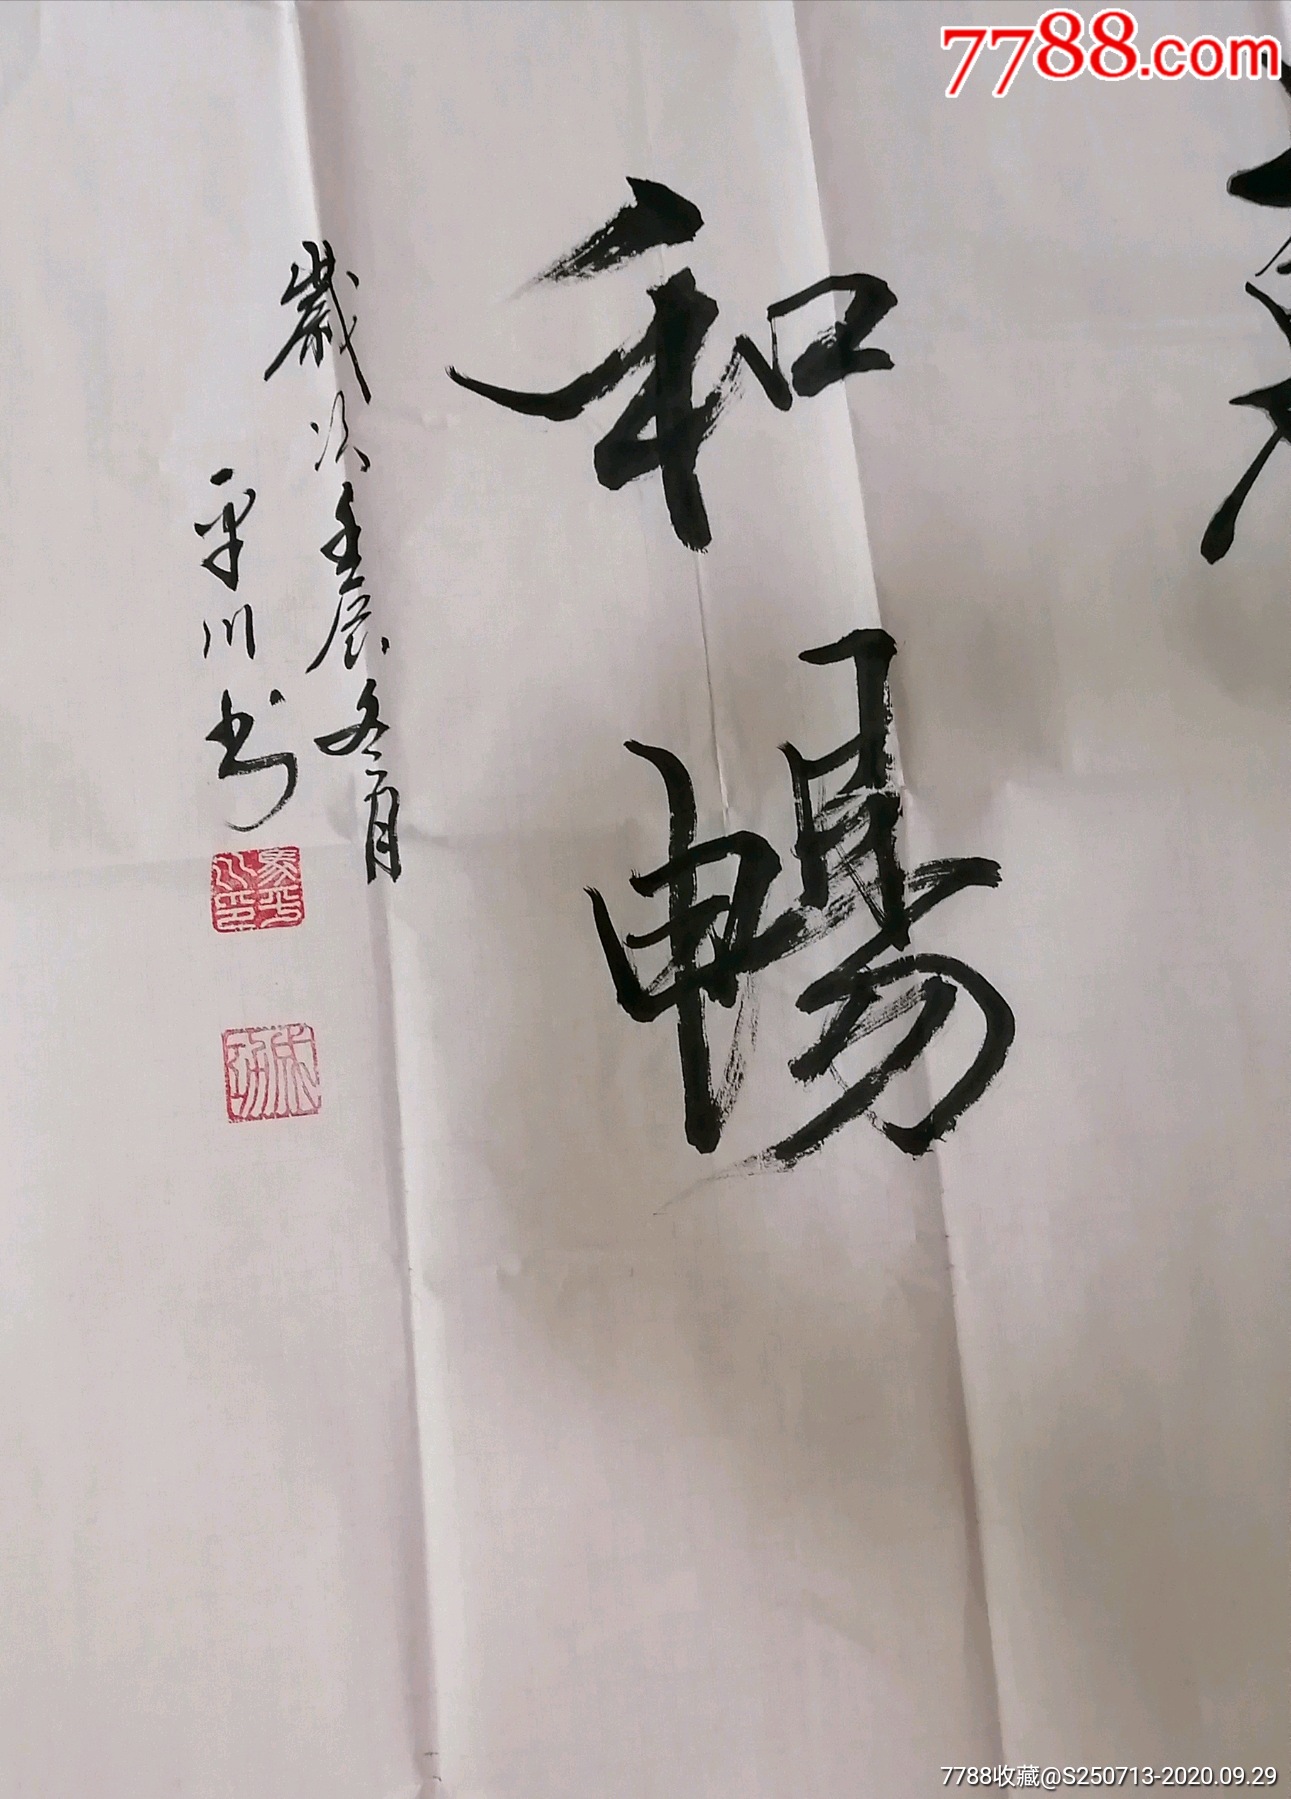 7788.com
和暢
歲次壬辰冬月
平川书
7788收藏@S250713-2020.09.29